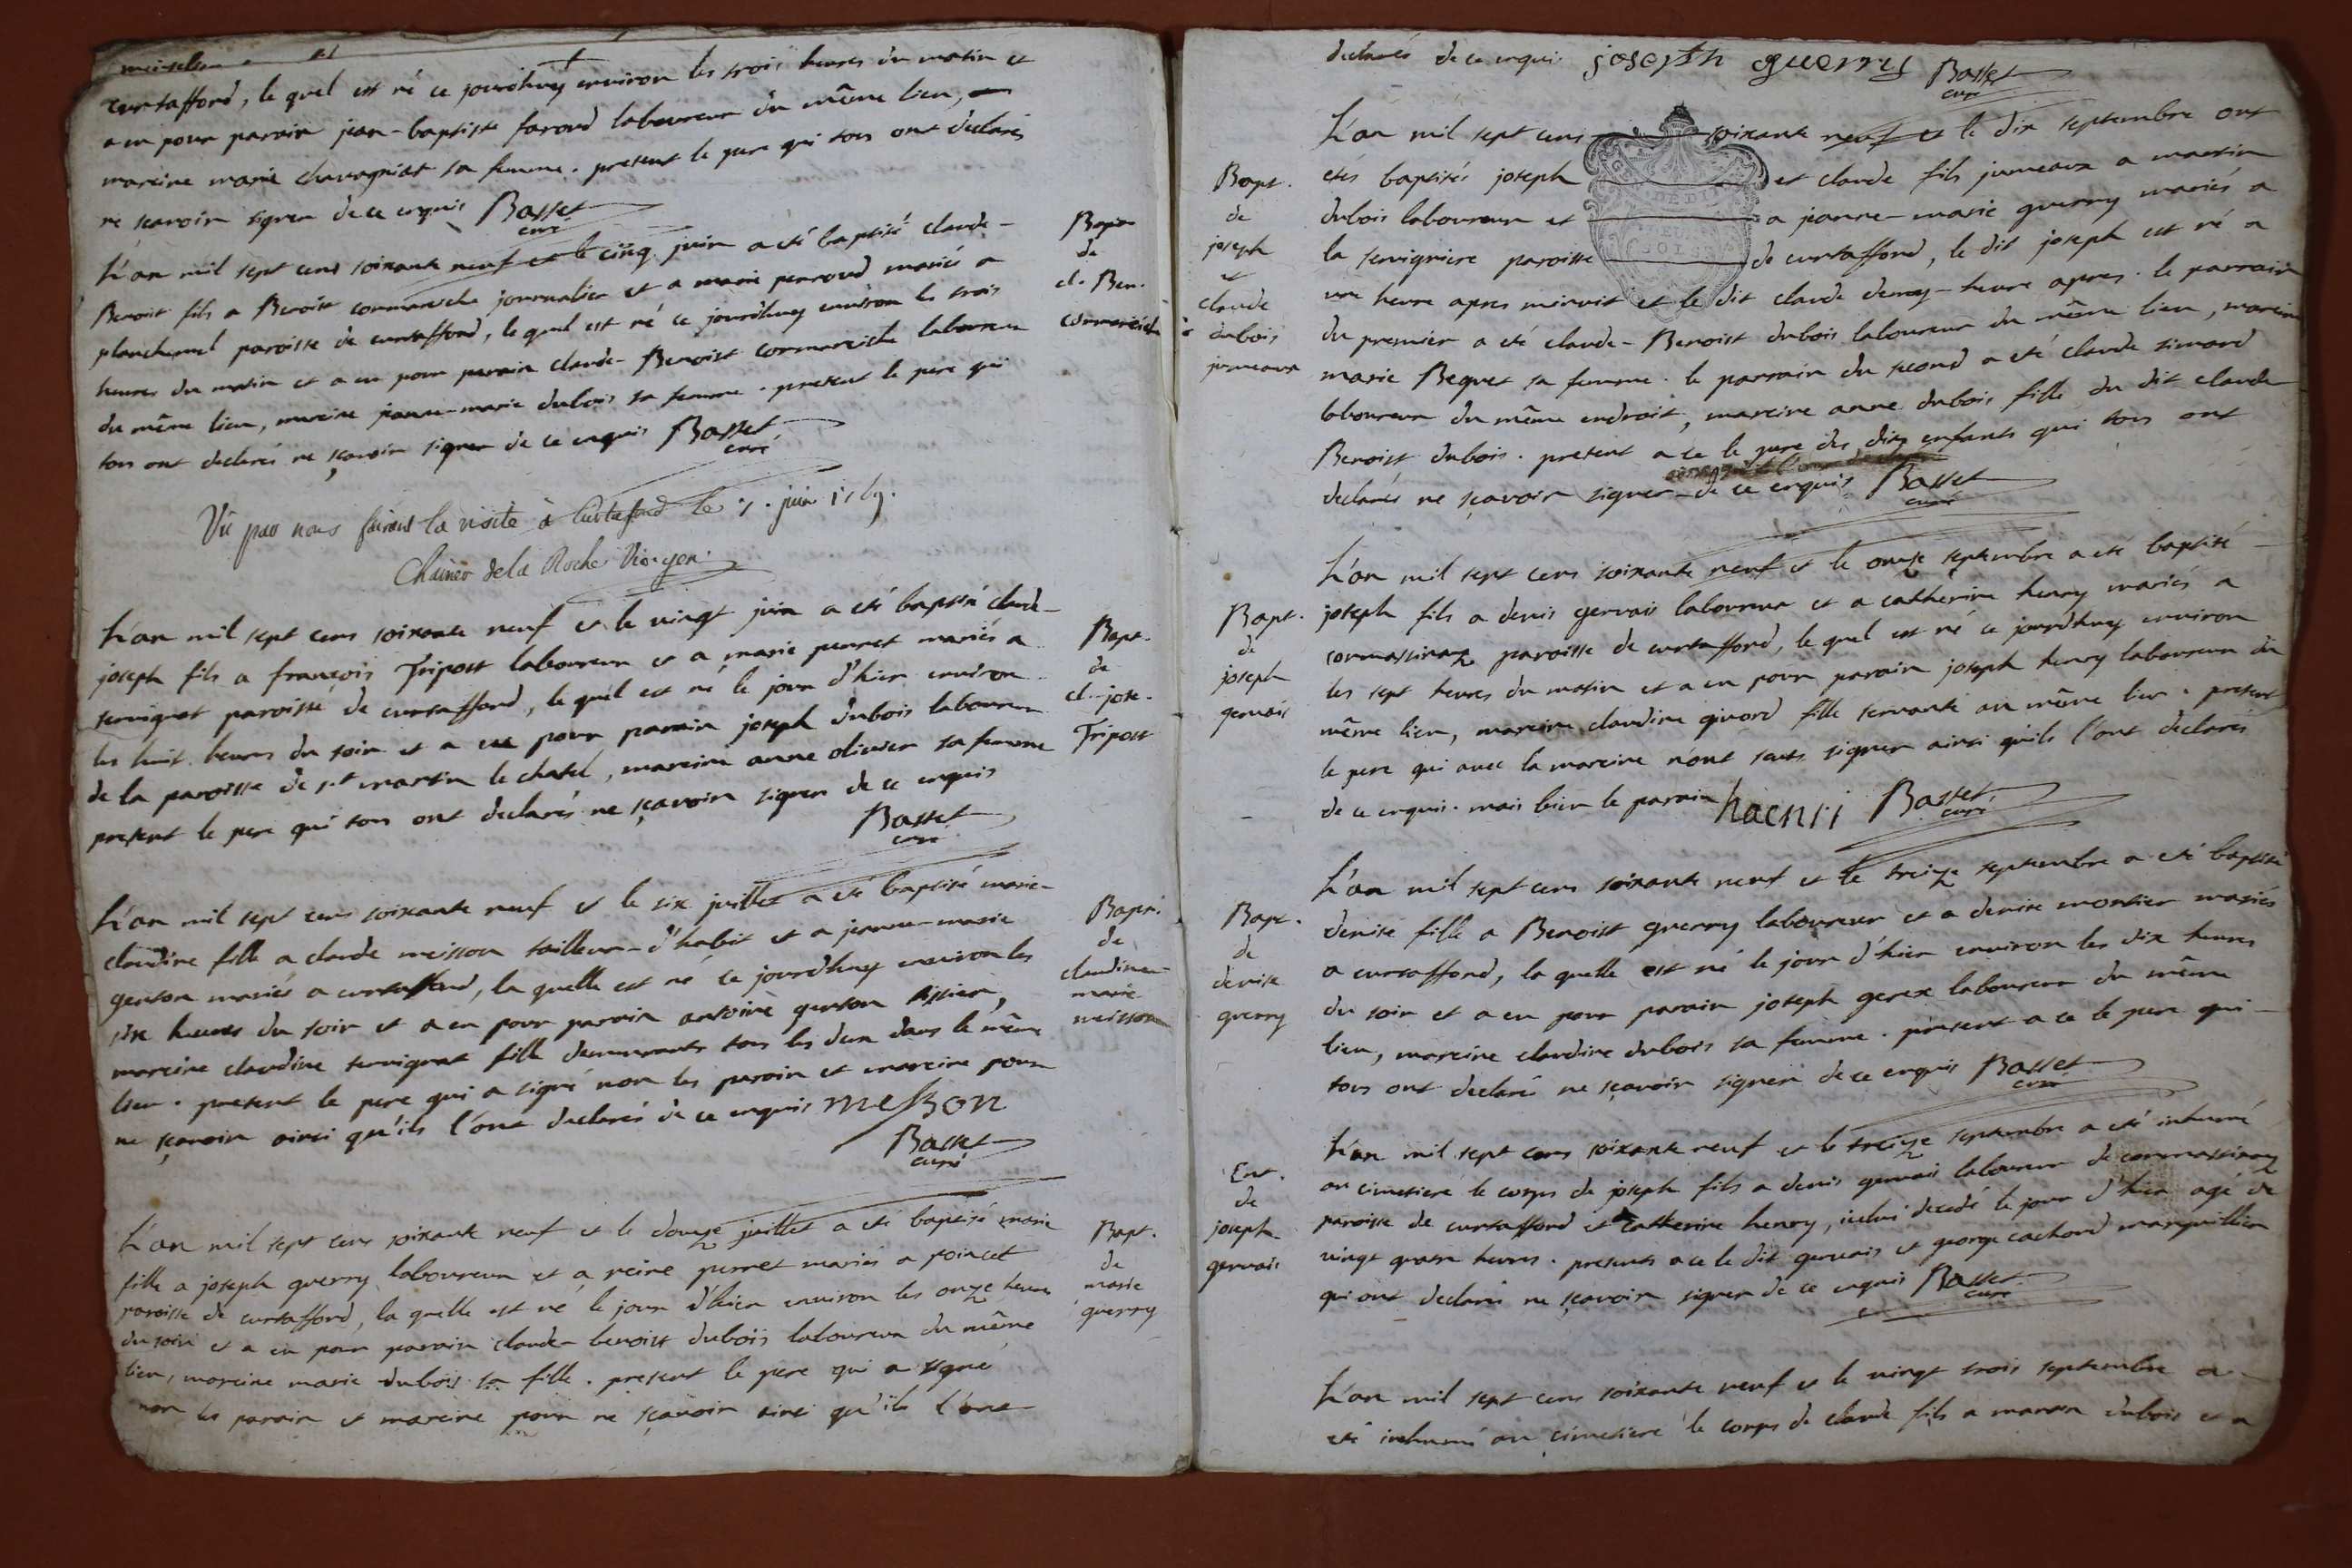 curtafford, le quel est né ce jourdhuy environ les trois heures du matin et
a eu pour parain jean-baptiste faroud laboureur du même lieu,
mareine marie chavagniat sa femme. present le pere qui tous ont declarés
ne scavoir signer de ce enquis Basset
curé
L'an mil sept cens soixante neuf et le cinq juin a eté baptisé claude-
Benoit fils a Benoist cormareiche journalier et a marie perroud mariés a
planchemel paroisse de curtafford, le quel est né ce jourdhuy environ les trois
heures du matin et a eu pour parain claude-Benoist cormareiche laboureur
du même lieu, mareine jeanne-marie dubois sa femme. present le pere qui
tous ont declarés ne sçavoir signer de ce enquis Basset
curé
Bapt.
de
cl. Ben.
cormareiche
Vû par nous faisant la visite à Curtafond le 7. juin 1769.
Chainer de la Roche Vic. gen.
L'an mil sept cens soixante neuf et le vingt juin a eté baptisé claude-
joseph fils a françois Tripost laboureur et a marie perret mariés a
servignat paroisse de curtafford, le quel est né le jour d'hier environ
les huit heures du soir et a eu pour parain joseph dubois laboureur
de la paroisse de st martin le chatel, mareine anne olivier sa femme
present le pere qui tous ont declarés ne sçavoir signer de ce enquis
Basset
curé
Bapt.
de
cl-jose.
Tripost
L'an mil sept cens soixante neuf et le six juillet a eté baptisé marie-
claudine fille a claude meisson tailleur-d'habit et a jeanne-marie
genton mariés a curtafford, la quelle est né ce jourdhuy environ les
six heures du soir et a eu pour parain antoine genton tissier,
mareine claudine servignat fille demeurants tous les deux dans le même
lieu. present le pere qui a signé non les parain et mareine pour
ne sçavoir ainsi qu'ils l'ont declarés de ce enquis meßon
Basset
curé
Bapt.
de
claudine-
marie
meisson
L'an mil sept cens soixante neuf et le douze juillet a eté baptisé marie
fille a joseph guerry laboureur et a reine perret mariés a poincet
paroisse de curtafford, la quelle est né le jour d'hier environ les onze heures
du soir et a eu pour parain claude-benoist dubois laboureur du même
lieu, mareine marie dubois sa fille. present le pere qui a signé
non les parain et mareine pour ne sçavoir ainsi qu'ils l'ont
Bapt.
de
marie
guerry
declarés de ce enquis joseph guerry Basset
curé
L'an mil sept cens soixante neuf et le dix septembre ont
etés baptisés joseph et claude fils jumeaux a martin
dubois laboureur et a jeanne-marie guerry mariés a
la servigniere paroisse de curtafford, le dit joseph est né a
une heure apres minuit et le dit claude demy-heure apres. le parrain
du premier a eté claude-Benoist dubois laboureur du même lieu, mareine
marie Bequet sa femme. le parrain du second a eté claude simard
laboureur du même endroit, mareine anne dubois fille du dit claude
Benoist dubois. present a ce le pere des dits enfants qui tous ont
declarés ne sçavoir signer de ce enquis Basset
curé
Bapt.
de
joseph
et
claude
dubois
jumeaux
L'an mil sept cens soixante neuf et le onze septembre a eté baptisé
joseph fils a denis gervais laboureur et a catherine henry mariés a
cormassinaz paroisse de curtafford, le quel est né ce jourdhuy environ
les sept heures du matin et a eu pour parain joseph henry laboureur du
même lieu, mareine claudine givord fille servante au même lieu. present
le pere qui avec la mareine n'ont sceuts signer ainsi qu'ils l'ont declarés
de ce enquis. mais bien le parain haenri Basset
curé
Bapt.
de
joseph
gervais
L'an mil sept cens soixante neuf et le treize septembre a eté baptisé
denise fille a Benoist guerry laboureur et a denise mortier mariés
a curtafford, la quelle est né le jour d'hier environ les dix heures
du soir et a eu pour parain joseph gerex laboureur du même
lieu, mareine claudine dubois sa femme. present a ce le pere qui
tous ont declaré ne sçavoir signer de ce enquis Basset
curé
Bapt.
de
denise
guerry
L'an mil sept cens soixante neuf et le treize septembre a eté inhumé
au cimetiere le corps de joseph fils a denis gervais laboureur de cormassinaz
paroisse de curtafford et catherine henry, icelui decedé le jour d'hier agé de
vingt quatre heures. presents a ce le dit gervais et george cachard marguillier
qui ont declarés ne sçavoir signer de ce enquis Basset
curé
Ent.
de
joseph
gervais
L'an mil sept cens soixante neuf et le vingt trois septembre a
eté inhumé au cimetiere le corps de claude fils a martin dubois et a